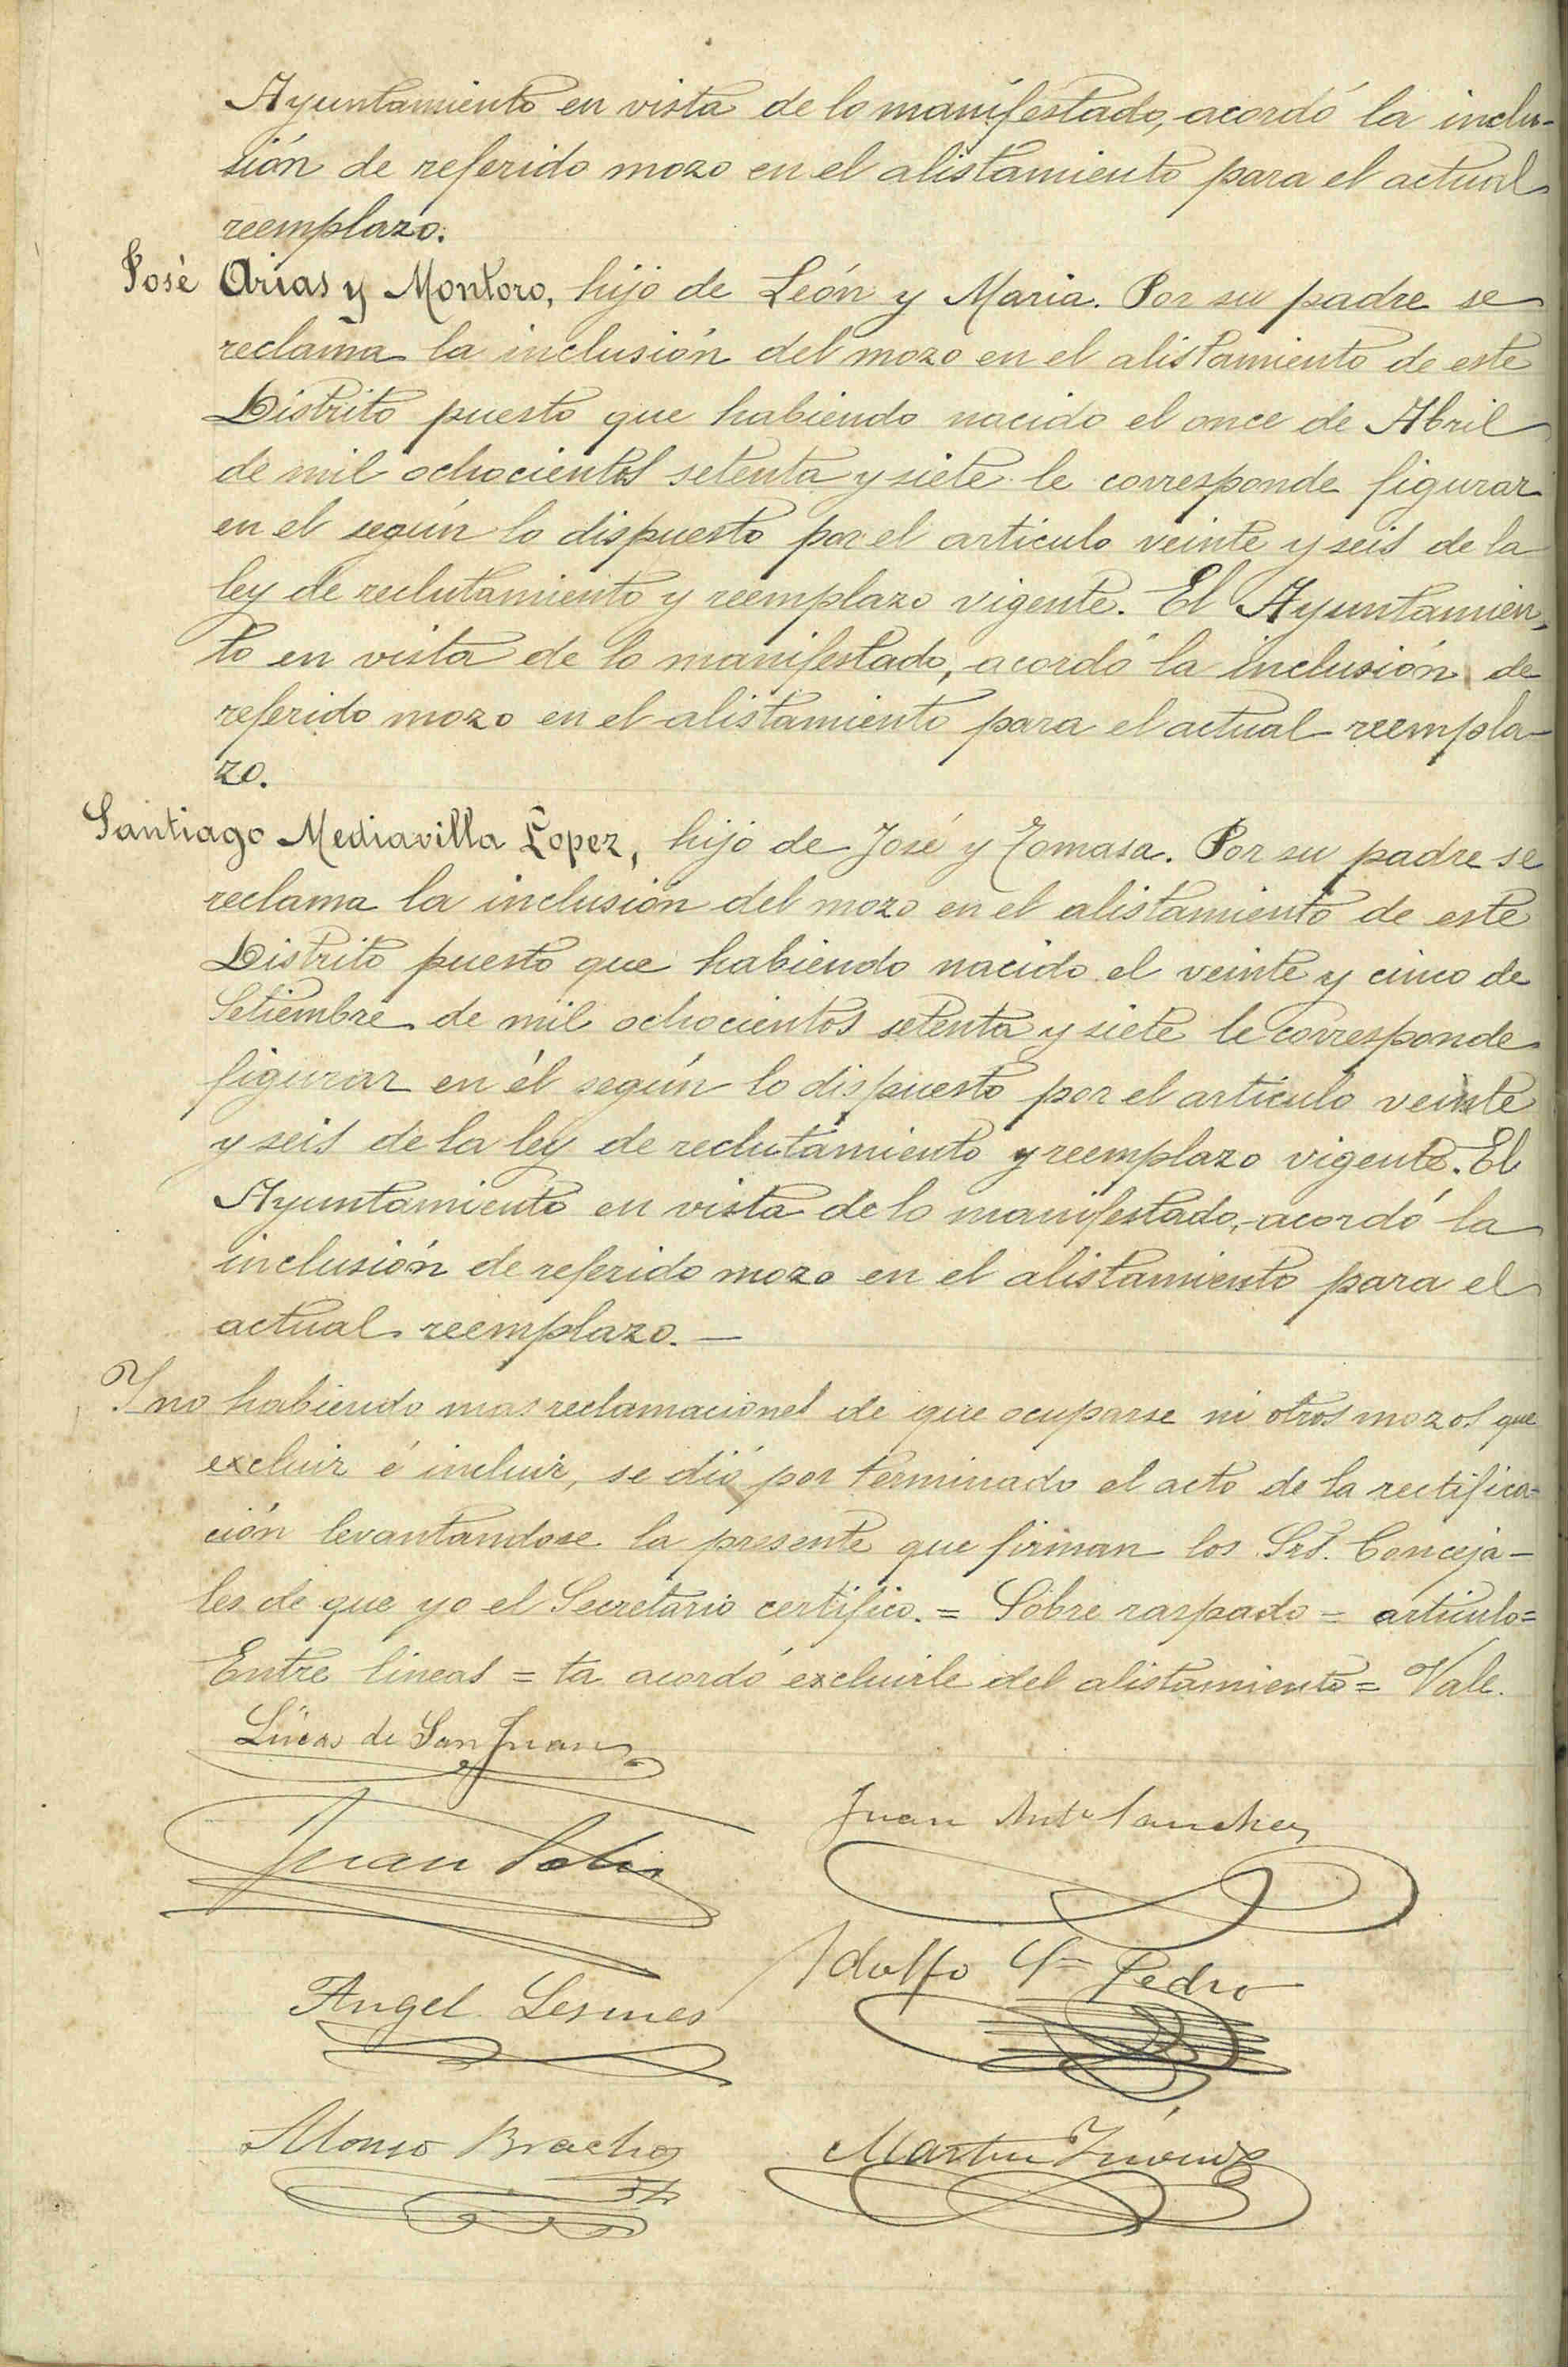 Ayuntamiento en vista de lo manifestado, acordó la inclu-
sión de referido mozo en el alistamiento para el actual
reemplazo.
José Arias y Montoro, hijo de León y Maria. Por su padre se
reclama la inclusión del mozo en el alistamiento de este
Distrito puesto que habiendo nacido el once de Abril
de mil ochocientos setenta y siete le corresponde figurar
en el según lo dispuesto por el articulo veinte y seis de la
ley de reclutamiento y reemplazo vigente. El Ayuntamien-
to en vista de lo manifestado, acordó la inclusión de
referido mozo en el alistamiento para el actual reempla-
zo.
Santiago Mediavilla Lopez, hijo de José y Tomasa. Por su padre se
reclama la inclusión del mozo en el alistamiento de este
Distrito puesto que habiendo nacido el veinte y cinco de
Setiembre de mil ochocientos setenta y siete le corresponde
figurar en él según lo dispuesto por el articulo veinte
y seis de la ley de reclutamiento y reemplazo vigente. El
Ayuntamiento en vista de lo manifestado, acordó la
inclusión de referido mozo en el alistamiento para el
actual reemplazo. —
Y no habiendo mas reclamaciones de que ocuparse ni otros mozos que
excluir é incluir, se dió por terminado el acto de la rectifica-
ción levantandose la presente que firman los Srs. Conceja-
les de que yo el Secretario certifico. = Sobre raspado = articulo =
Entre lineas = ta acordó excluirle del alistamiento = Vale.
Lúcas de San Juan
Juan Antº Sanchez
Juan
Adolfo Sn Pedro
Angel Lesmes
Alonso Bracho
Martin